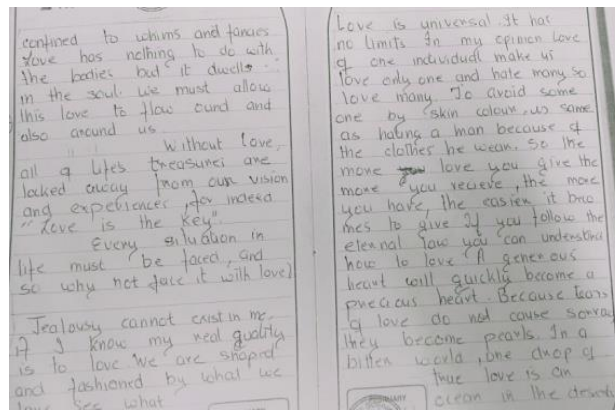 confined to whims and fancies
Love has nothing to do with
the bodies but it dwells
in the soul. we must allow
this love to flow and
also around us
Without love,
all of Lifes treasures are
locked away from our vision
and experiences, for indeed
"Love is the key".
Every situation in
life must be faced, and
so why not face it with love)
Jealousy cannot exist in me,
if I know my real quality
is to love. We are shaped
and fashioned by what we
what
Love is universal. It has
no limits. In my opinion Love
of one individual make us
love only one and hate many. so
love many. To avoid some
one by skin colour, us same
as hating a man because of
the clothes he wear. So the
more love you give the
more you recieve, the more
you have, the easier it beco
mes to give. If you follow the
eternal law you can understand
how to love. A generous
heart will quickly become a
precious heart. Because tears
of love do not cause sorrow
they become pearls. In a
bitter world, one drop of
true love is an
ocean in the desert